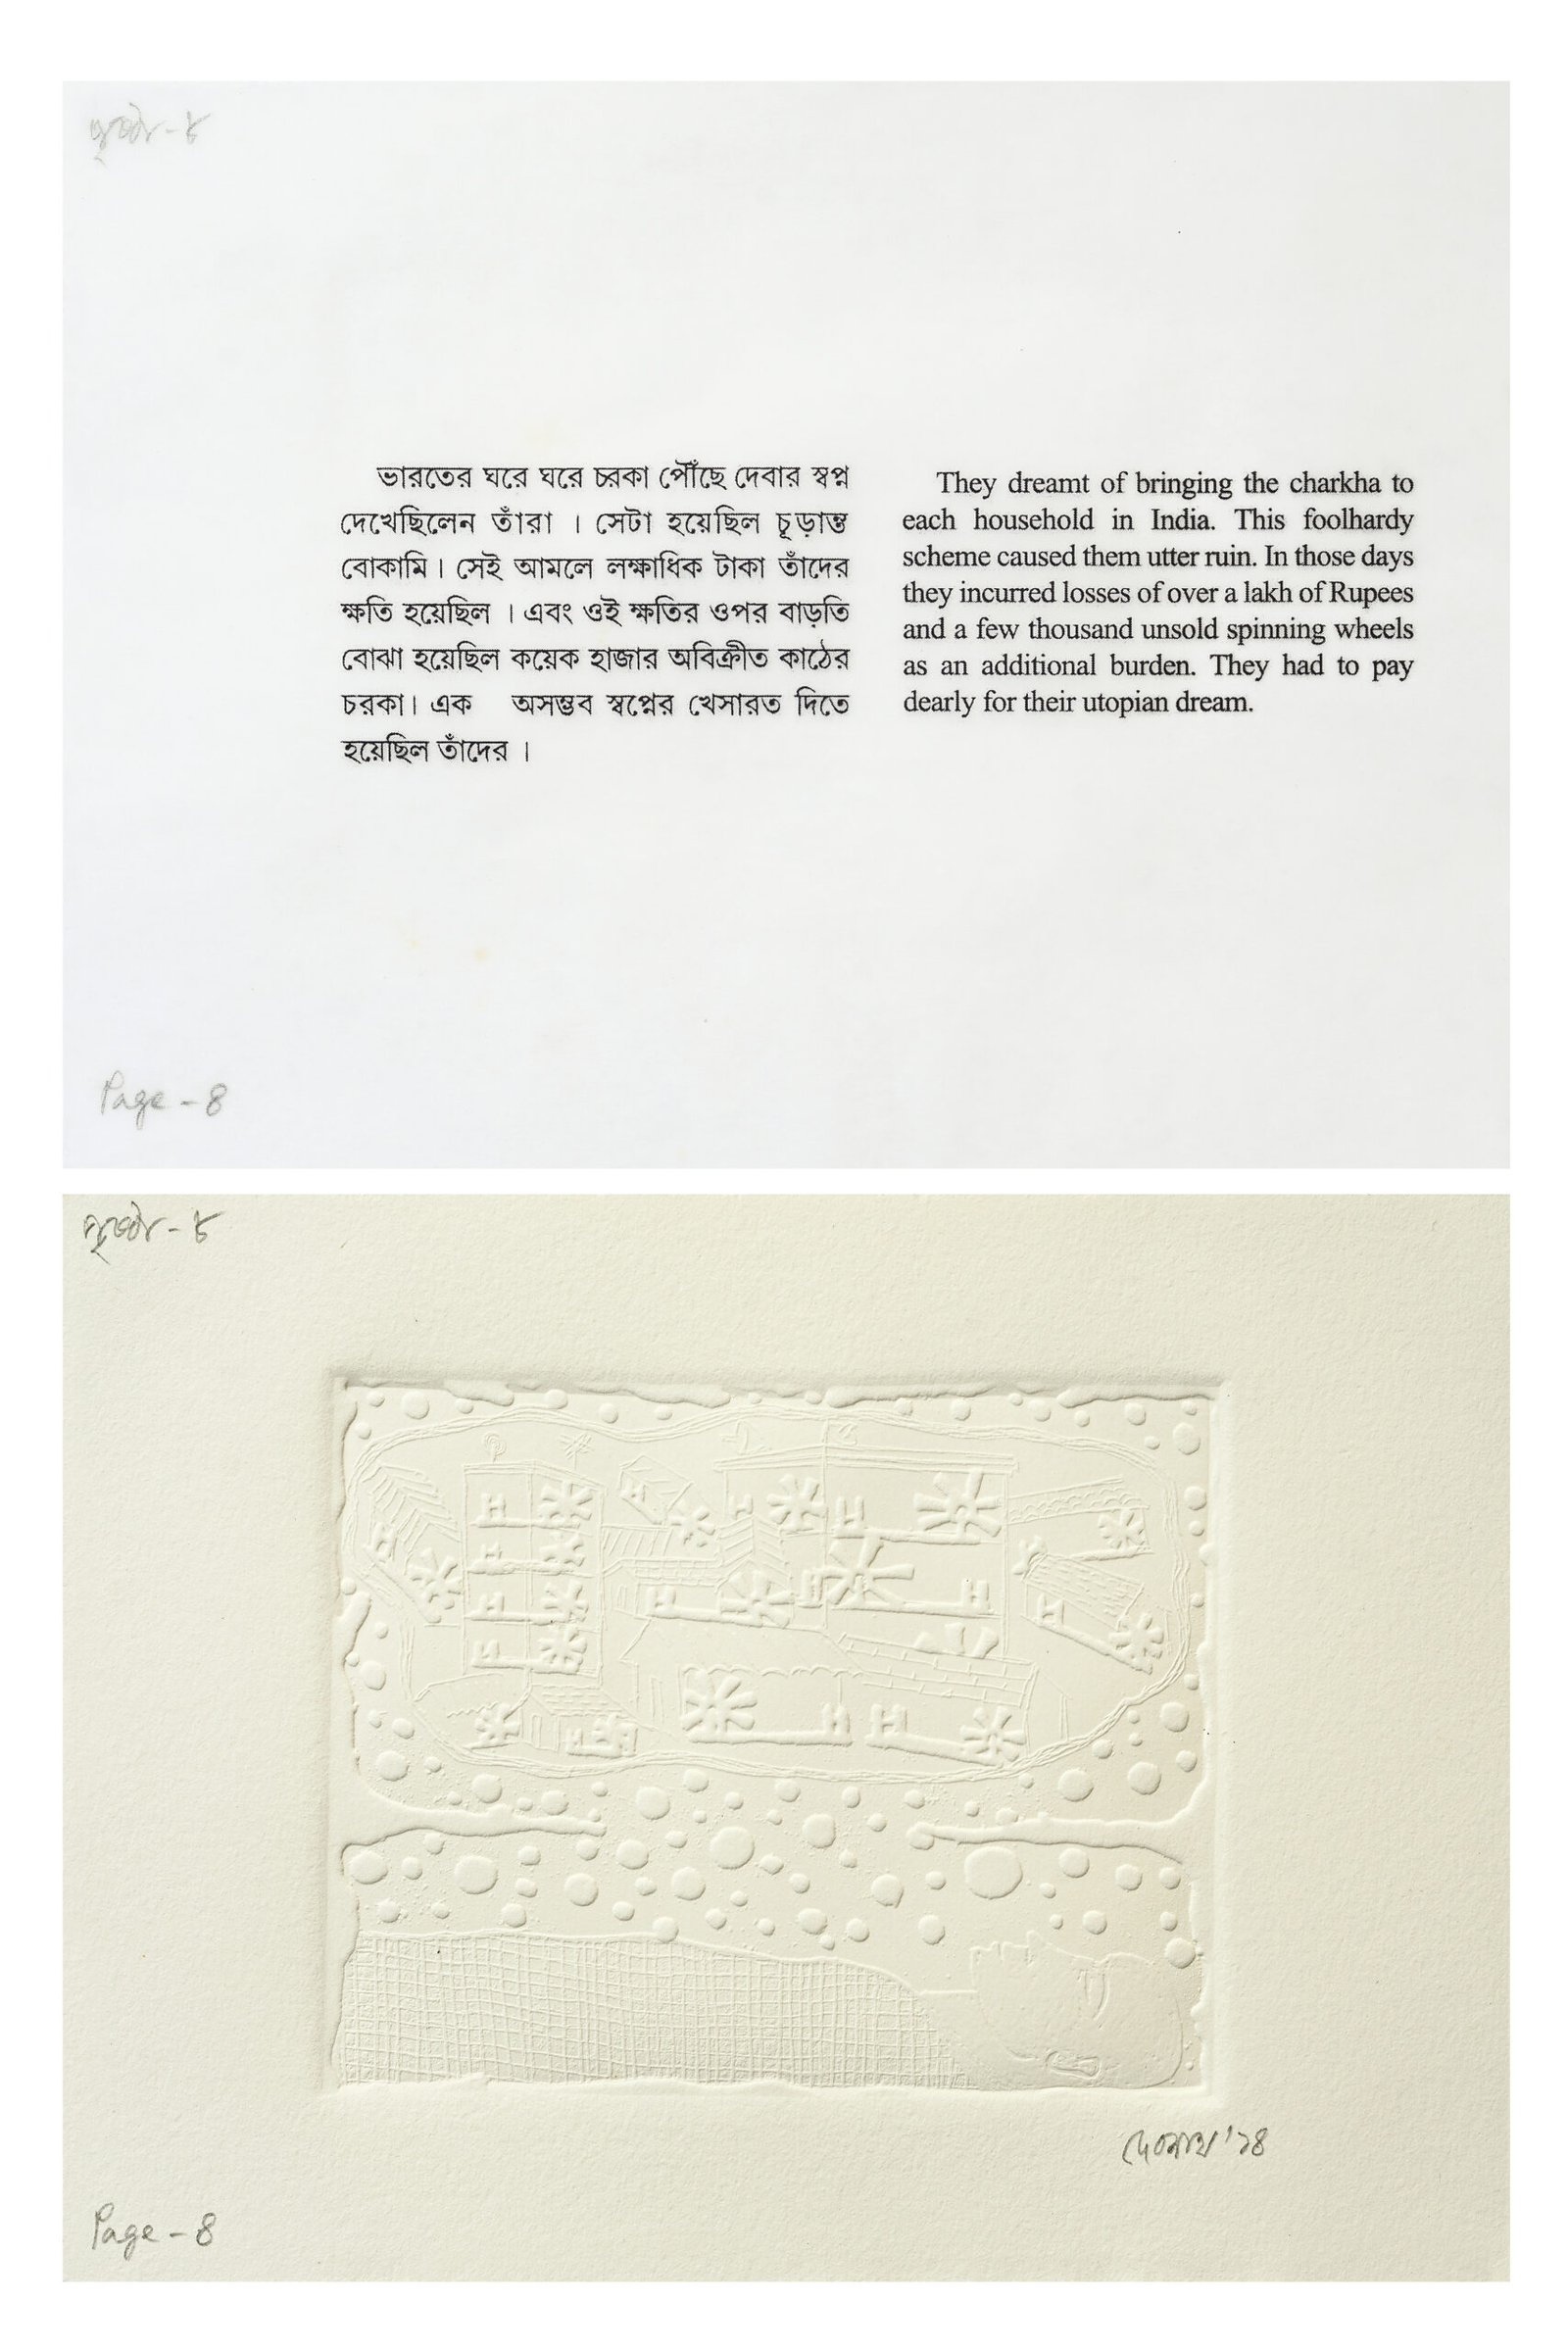 পৃষ্ঠা - ৮
ভারতের ঘরে ঘরে চরকা পৌঁছে দেবার স্বপ্ন
দেখেছিলেন তাঁরা । সেটা হয়েছিল চূড়ান্ত
বোকামি। সেই আমলে লক্ষাধিক টাকা তাঁদের
ক্ষতি হয়েছিল । এবং ওই ক্ষতির ওপর বাড়তি
বোঝা হয়েছিল কয়েক হাজার অবিক্রীত কাঠের
চরকা। এক অসম্ভব স্বপ্নের খেসারত দিতে
হয়েছিল তাঁদের ।
They dreamt of bringing the charkha to
each household in India. This foolhardy
scheme caused them utter ruin. In those days
they incurred losses of over a lakh of Rupees
and a few thousand unsold spinning wheels
as an additional burden. They had to pay
dearly for their utopian dream.
Page - 8
পৃষ্ঠা - ৮
দেবনাথ '১৪
Page - 8